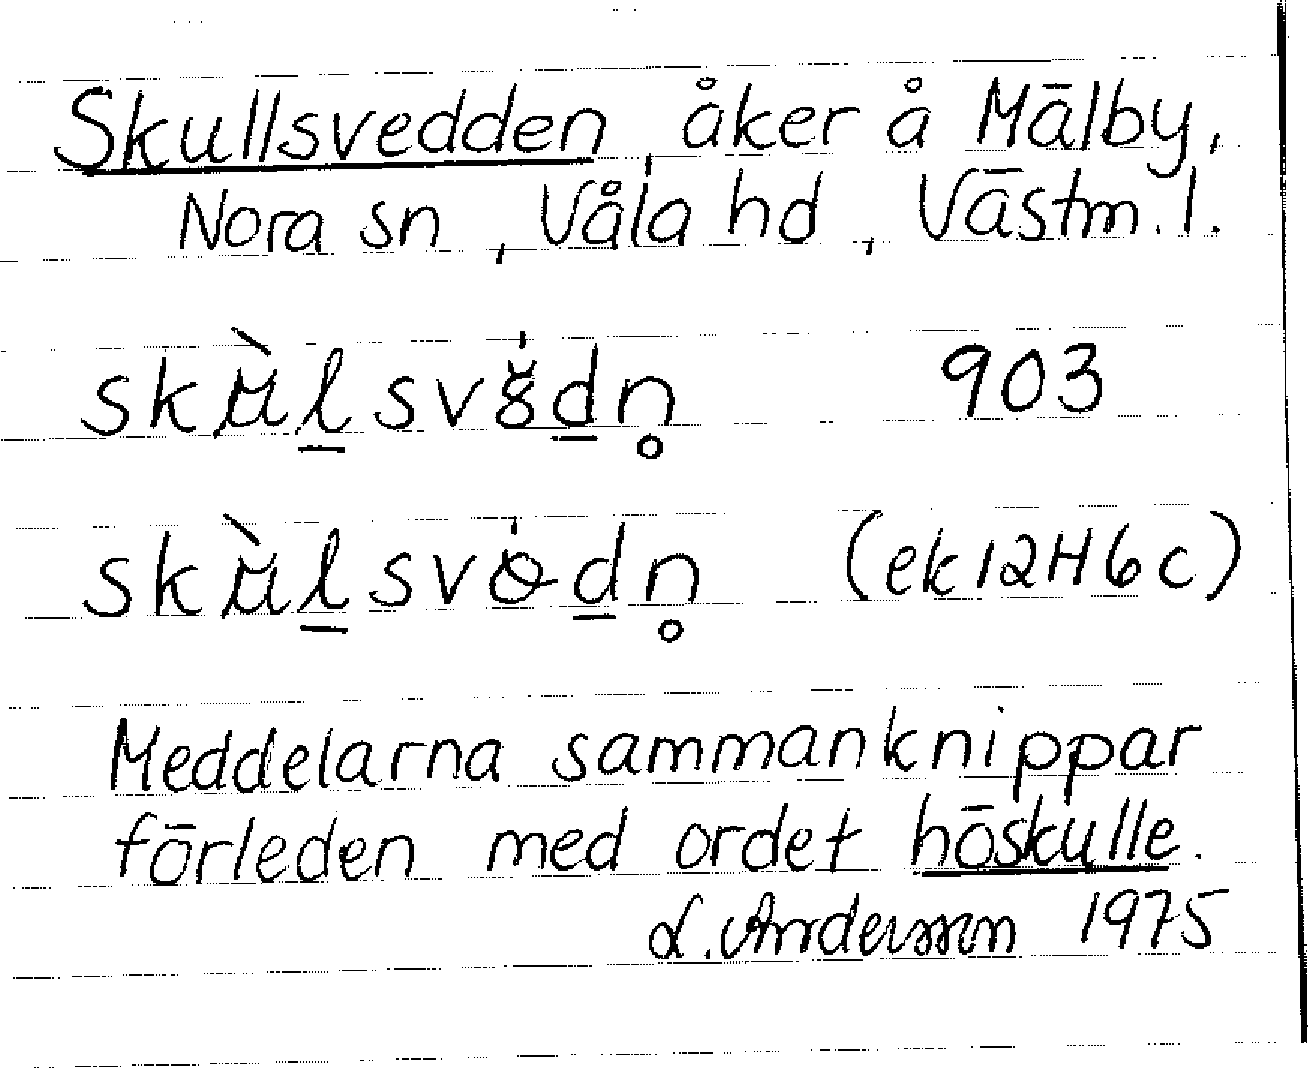 Skullsvedden, åker å Mälby,
Nora sn, Våla hd, Västm. l.
skùl̲svẹ̈́d̲n̥ 903
skùl̲svɵ́d̲n̥ (ek 12H6c)
Meddelarna sammanknippar
förleden med ordet höskulle.
L. Andersson 1975